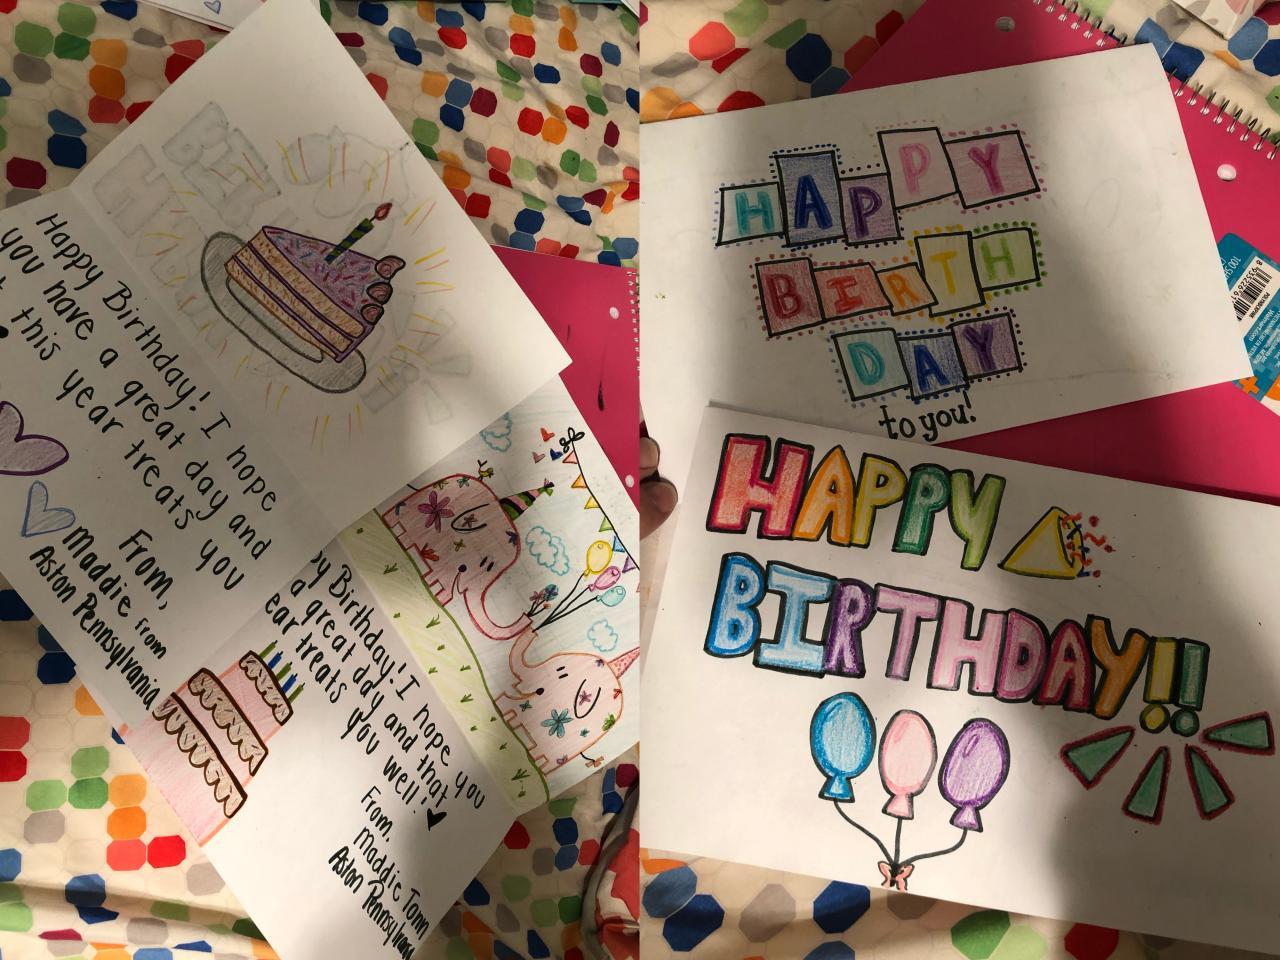 Happy Birthday! I hope
you have a great day and
this year treats you
From,
Maddie from
Aston Pennsylvania
Birthday! I hope you
a great day and that
year treats you well!
From,
Maddie Tomn
Aston Pennsylvania
HAPPY
BIRTH
DAY
to you!
HAPPY
BIRTHDAY!!